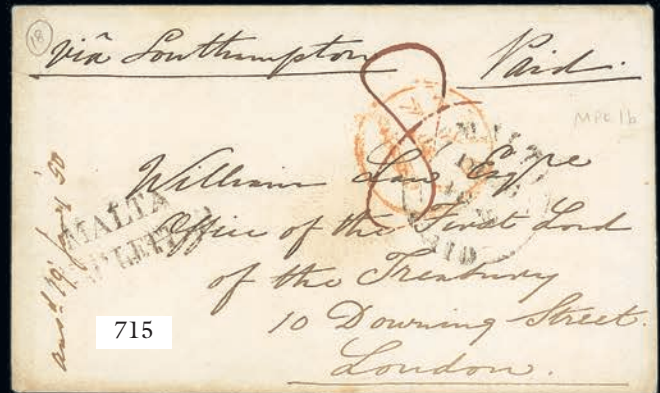 18
viâ Southampton
Paid.
8
MPC 1b
MALTA
William Law Esqre
Office of the First Lord
of the Treasury
10 Downing Street.
London.
MALTA
ansd. 19 Jany 50
715